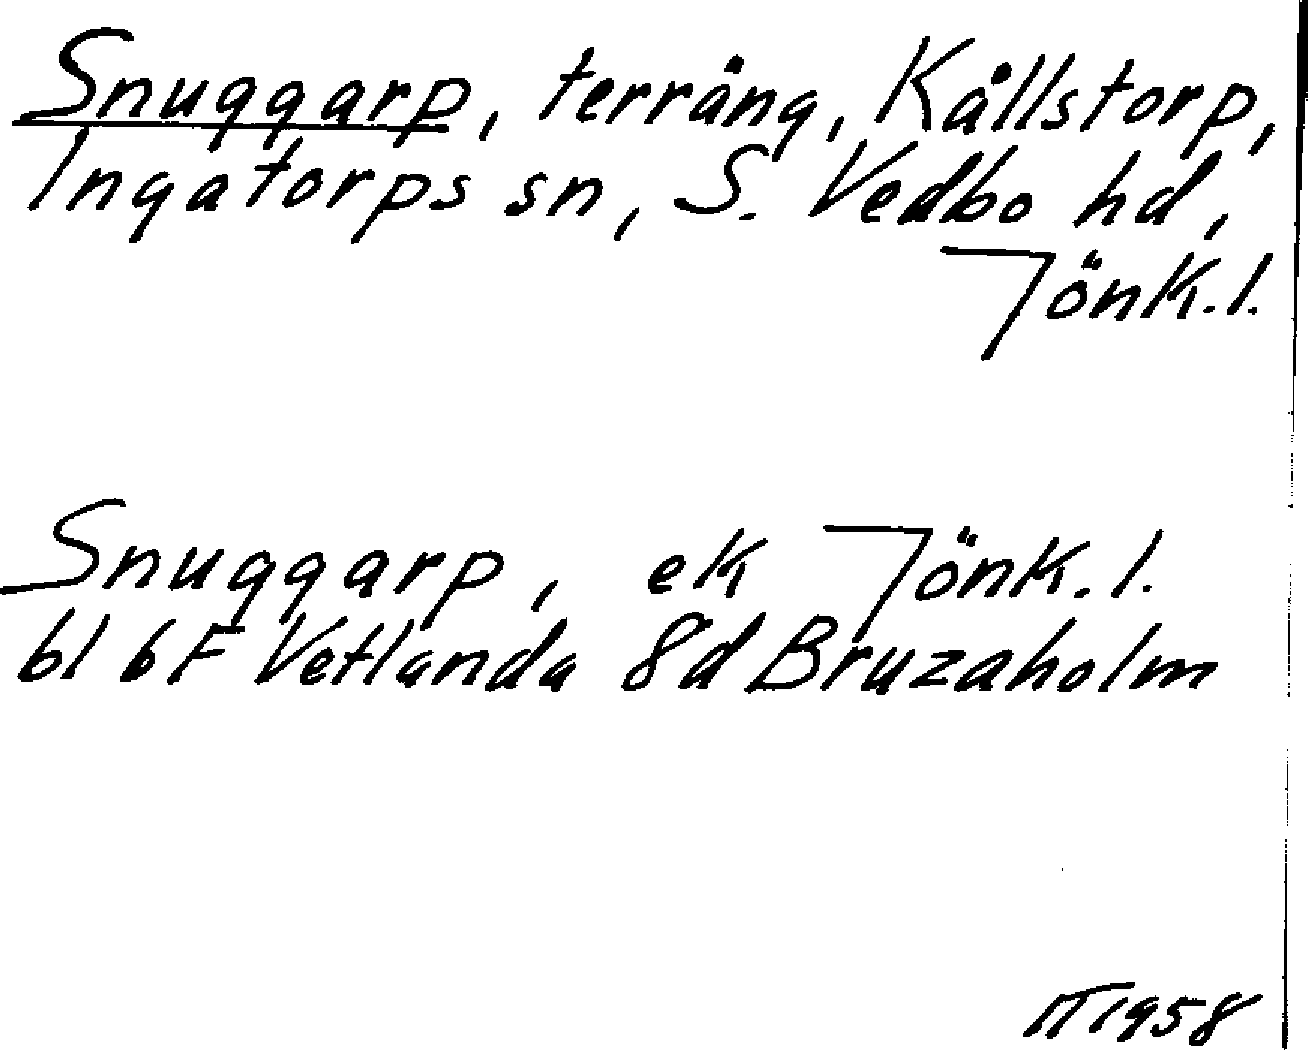 Snuggarp, terräng, Källstorp,
Ingatorps sn, S. Vedbo hd,
Jönk.l.
Snuggarp, ek Jönk.l.
bl 6F Vetlanda 8d Bruzaholm
IT 1958